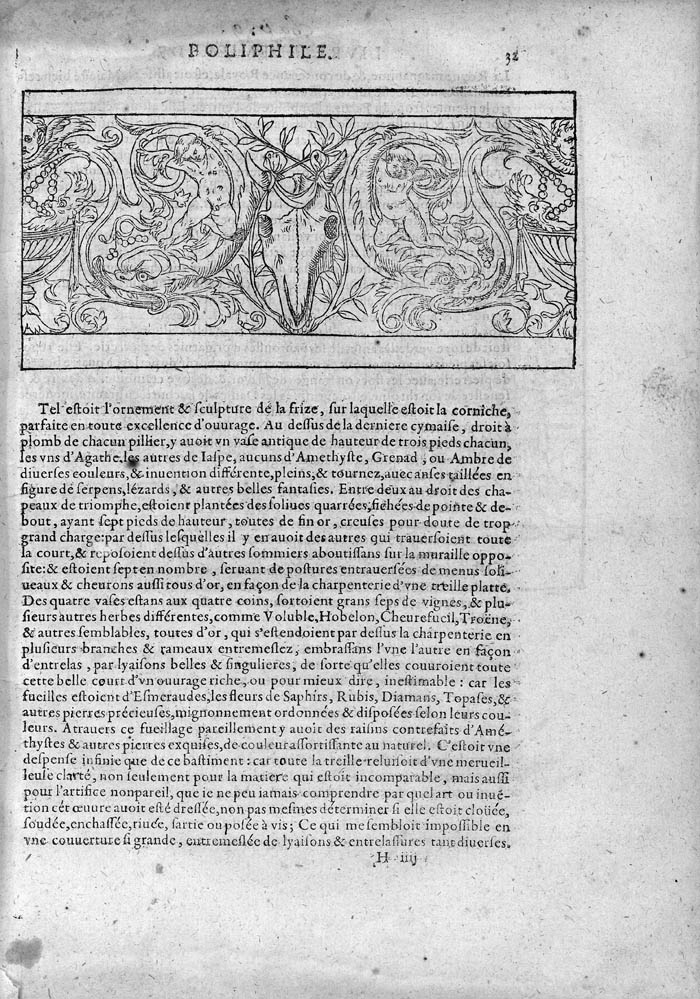 POLIPHILE. 32
Tel eſtoit l'ornement & ſculpture de la frize, ſur laquelle eſtoit la corniche,
parfaite en toute excellence d'ouurage. Au deſſus de la derniere cymaiſe, droit à
plomb de chacun pillier, y auoit vn vaſe antique de hauteur de trois pieds chacun,
les vns d'Agathe, les autres de Iaſpe, aucuns d'Amethyſte, Grenad, ou Ambre de
diuerſes couleurs, & inuention différente, pleins, & tournez, auec anſes taillées en
figure de ſerpens, lézards, & autres belles fantaſies. Entre deux au droit des cha-
peaux de triomphe, eſtoient plantées des ſoliues quarrées, fichées de pointe & de-
bout, ayant ſept pieds de hauteur, toutes de fin or, creuſes pour doute de trop
grand charge: par deſſus leſquelles il y en auoit des autres qui trauerſoient toute
la court, & repoſoient deſſus d'autres ſommiers aboutiſſans ſur la muraille oppo-
ſite: & eſtoient ſept en nombre, ſeruant de poſtures entrauerſées de menus ſoli-
ueaux & cheurons auſſi tous d'or, en façon de la charpenterie d'vne treille platte.
Des quatre vaſes eſtans aux quatre coins, ſortoient grans ſeps de vignes, & plu-
ſieurs autres herbes différentes, comme Voluble, Hobelon, Cheurefueil, Troëne,
& autres ſemblables, toutes d'or, qui s'eſtendoient par deſſus la charpenterie en
pluſieurs branches & rameaux entremeſlez, embraſſans l'vne l'autre en façon
d'entrelas, par lyaiſons belles & ſingulieres, de ſorte qu'elles couuroient toute
cette belle court d'vn ouurage riche, ou pour mieux dire, ineſtimable: car les
fueilles eſtoient d'Eſmeraudes, les fleurs de Saphirs, Rubis, Diamans, Topaſes, &
autres pierres précieuſes, mignonnement ordonnées & diſpoſées ſelon leurs cou-
leurs. Atrauers ce fueillage pareillement y auoit des raiſins contrefaits d'Amé-
thyſtes & autres pierres exquiſes, de couleur aſſortiſſante au naturel. C'eſtoit vne
deſpenſe infinie que de ce baſtiment: car toute la treille reluiſoit d'vne merueil-
leuſe clarté, non ſeulement pour la matiere qui eſtoit incomparable, mais auſſi
pour l'artifice nonpareil, que ie ne peu iamais comprendre par quel art ou inué-
tion cét œuure auoit eſté dreſſée, non pas meſmes déterminer ſi elle eſtoit cloüée,
ſoudée, enchaſſée, riuée, ſartie ou poſée à vis; Ce qui me ſembloit impoſſible en
vne couuerture ſi grande, entremeſlée de lyaiſons & entrelaſſures tant diuerſes.
H iiij